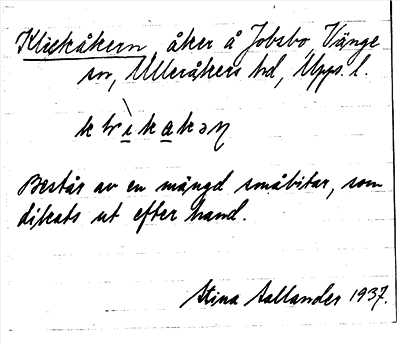 Klickåkern, åker å Jobsbo, Vänge
sn, Ulleråkers hd, Upps. l.
Består av en mängd småbitar, som
dikats ut efter hand.
Stina Sallander 1937.